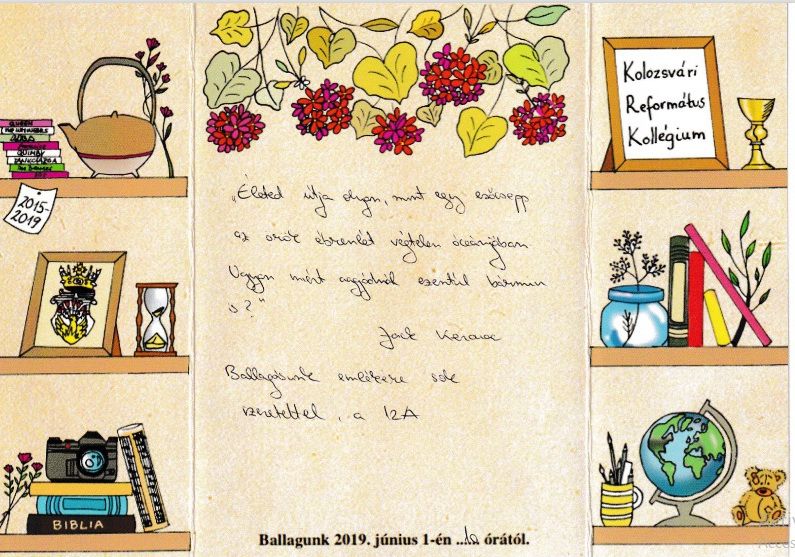 QUEEN
QUIMBY
2015-
2019
BIBLIA
„Életed útja olyan, mint egy esőcsepp
az örök ébrenlét végtelen óceánjában
Ugyan miért aggódnál ezentúl bármin
is?"
Jack Kerouac
Ballagásunk emlékére sok
szeretettel, a 12A
Ballagunk 2019. június 1-én ... órától.
Kolozsvári
Református
Kollégium